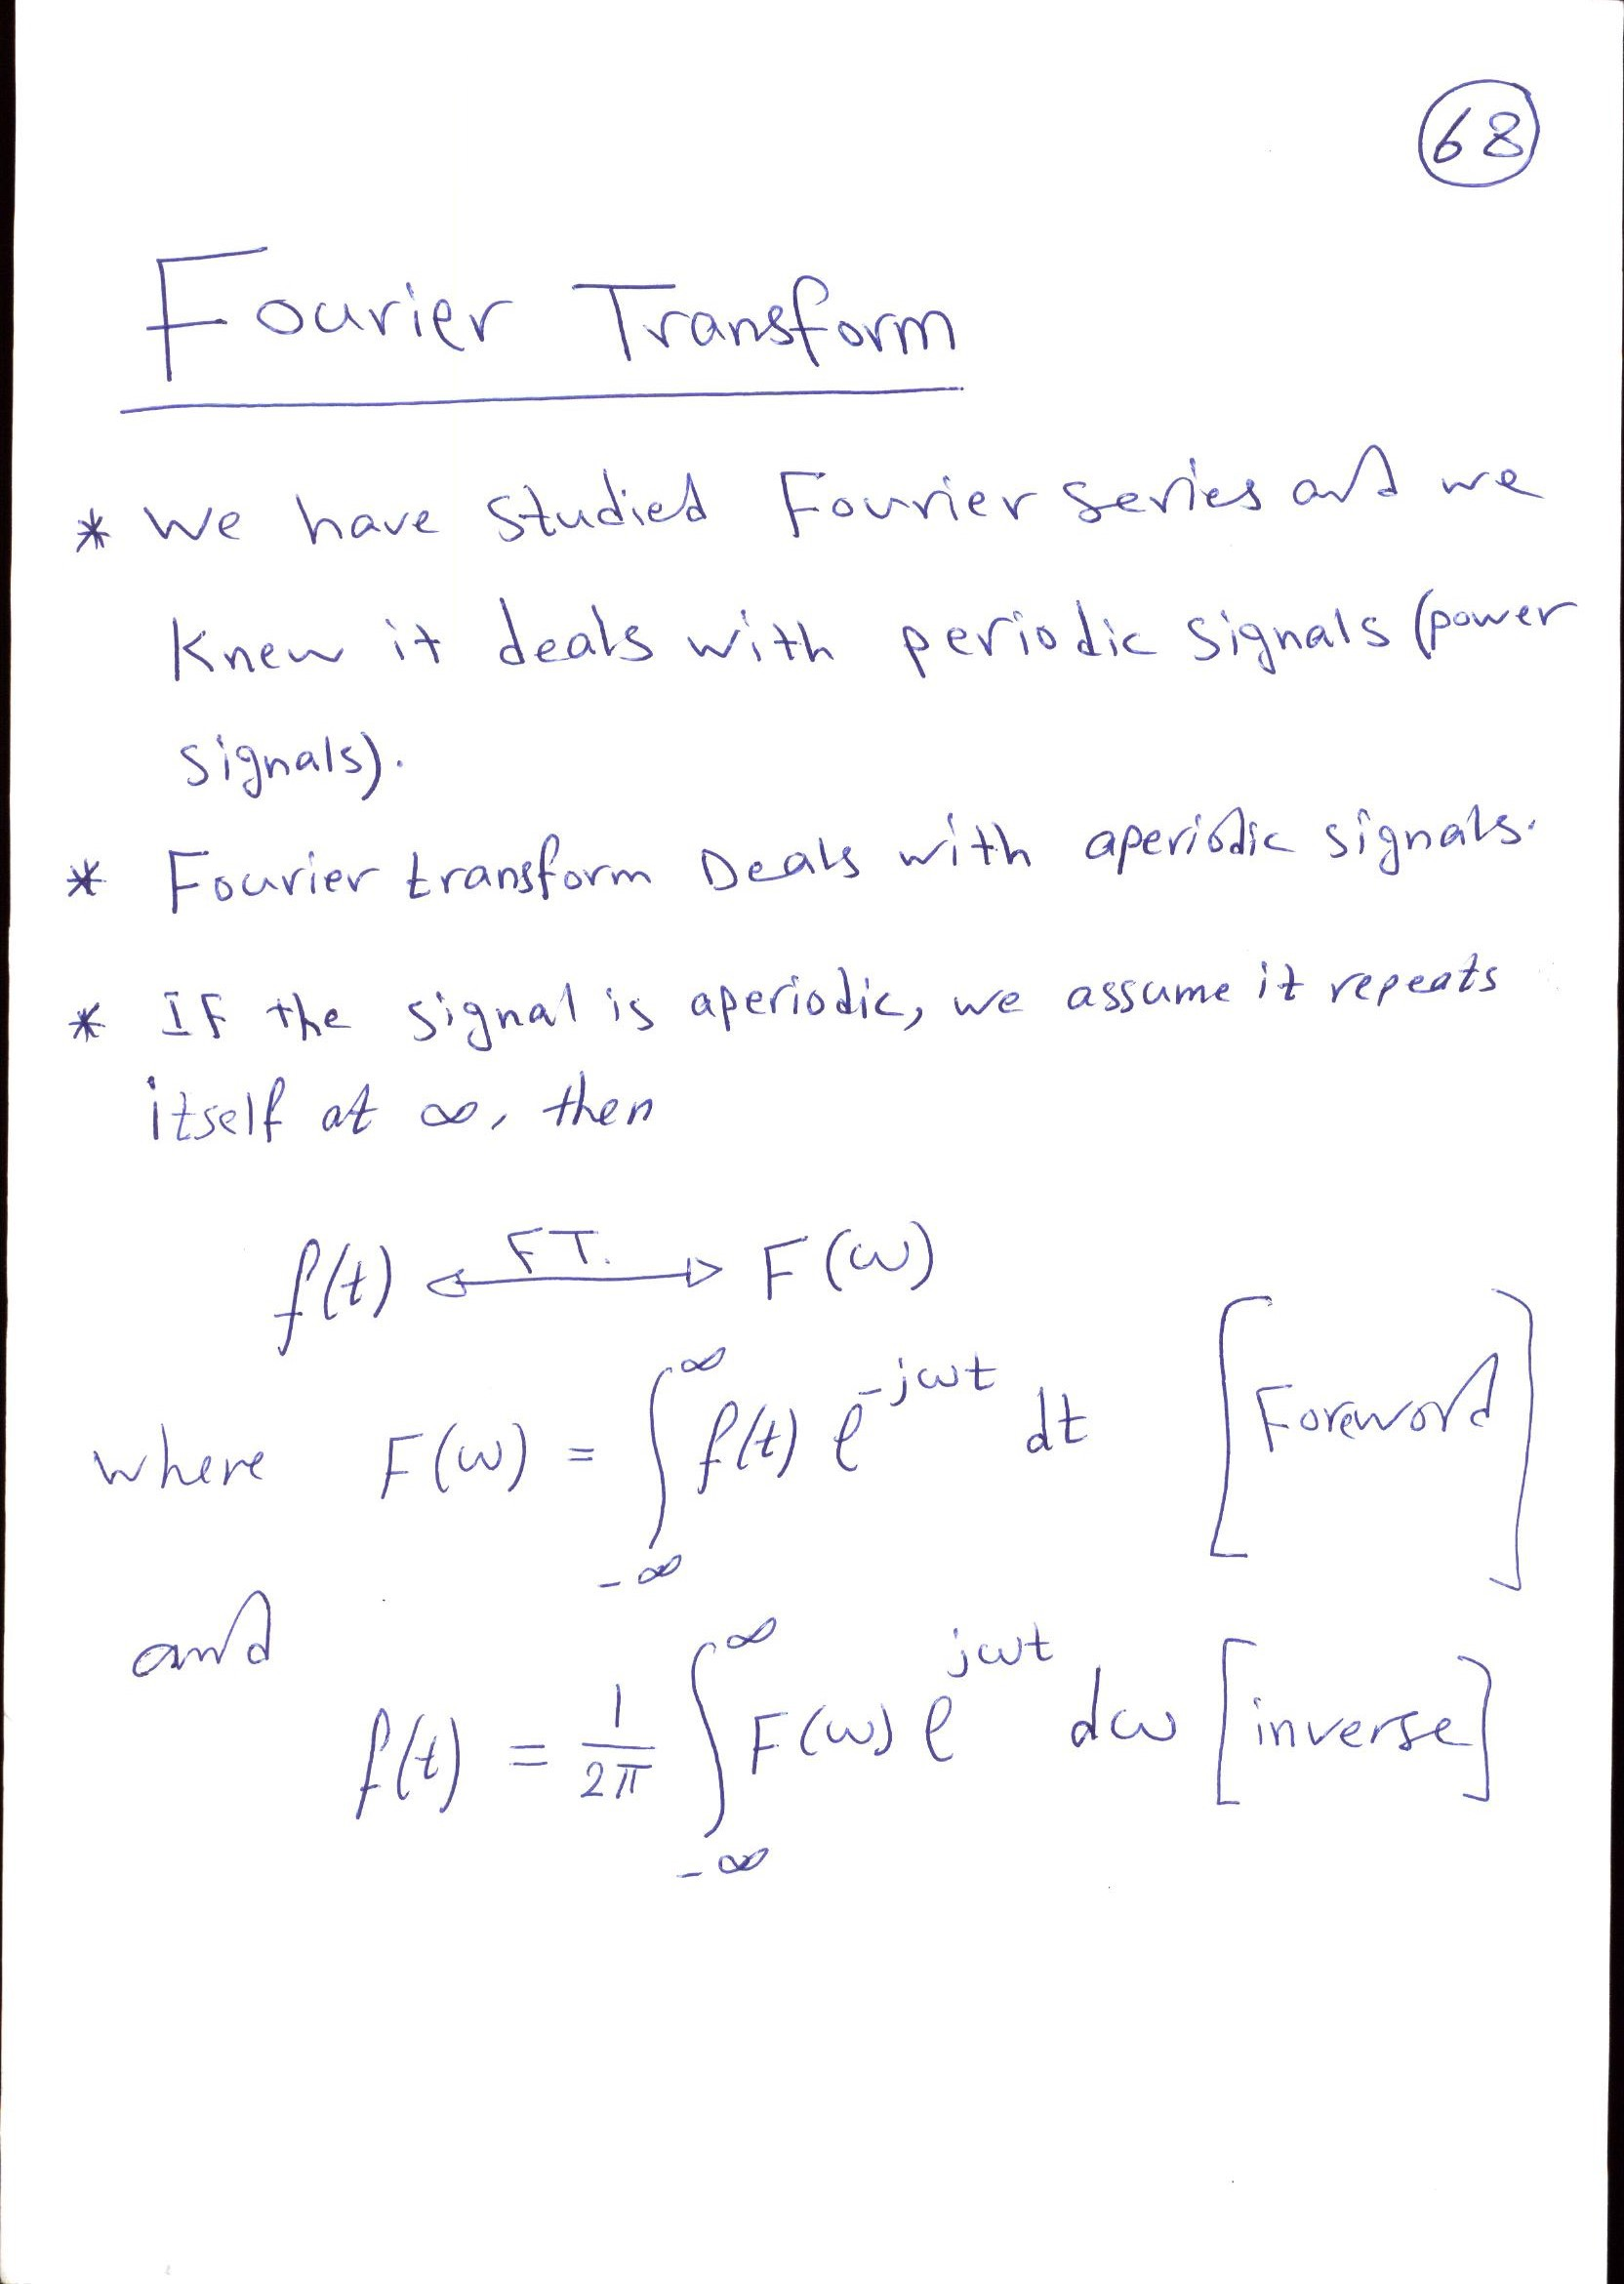 68
Fourier Transform
* We have studied Fourier series and we
Knew it deals with periodic signals (power
signals).
* Fourier transform Deals with aperiodic signals.
* IF the signal is aperiodic, we assume it repeats
itself at ∞, then
f(t) <—FT.—> F(ω)
where F(ω) = ∫_{-∞}^{∞} f(t) e^{-jωt} dt [Foreword]
and
f(t) = 1/2π ∫_{-∞}^{∞} F(ω) e^{jωt} dω [inverse]